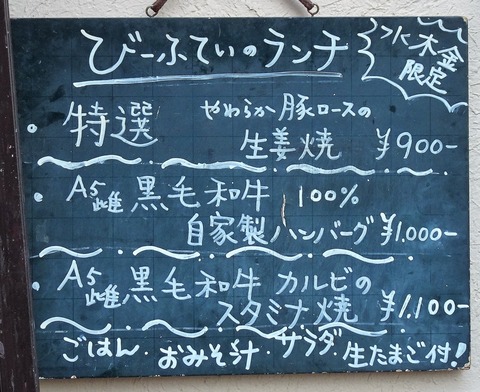 びーふていのランチ
水木金
限定
特選 やわらか豚ロースの
生姜焼 ¥900-
・A5雌黒毛和牛 100%
自家製ハンバーグ ¥1.000-
・A5雌黒毛和牛カルビの
スタミナ焼 ¥1.100-
ごはん・おみそ汁・サラダ・生たまご付!